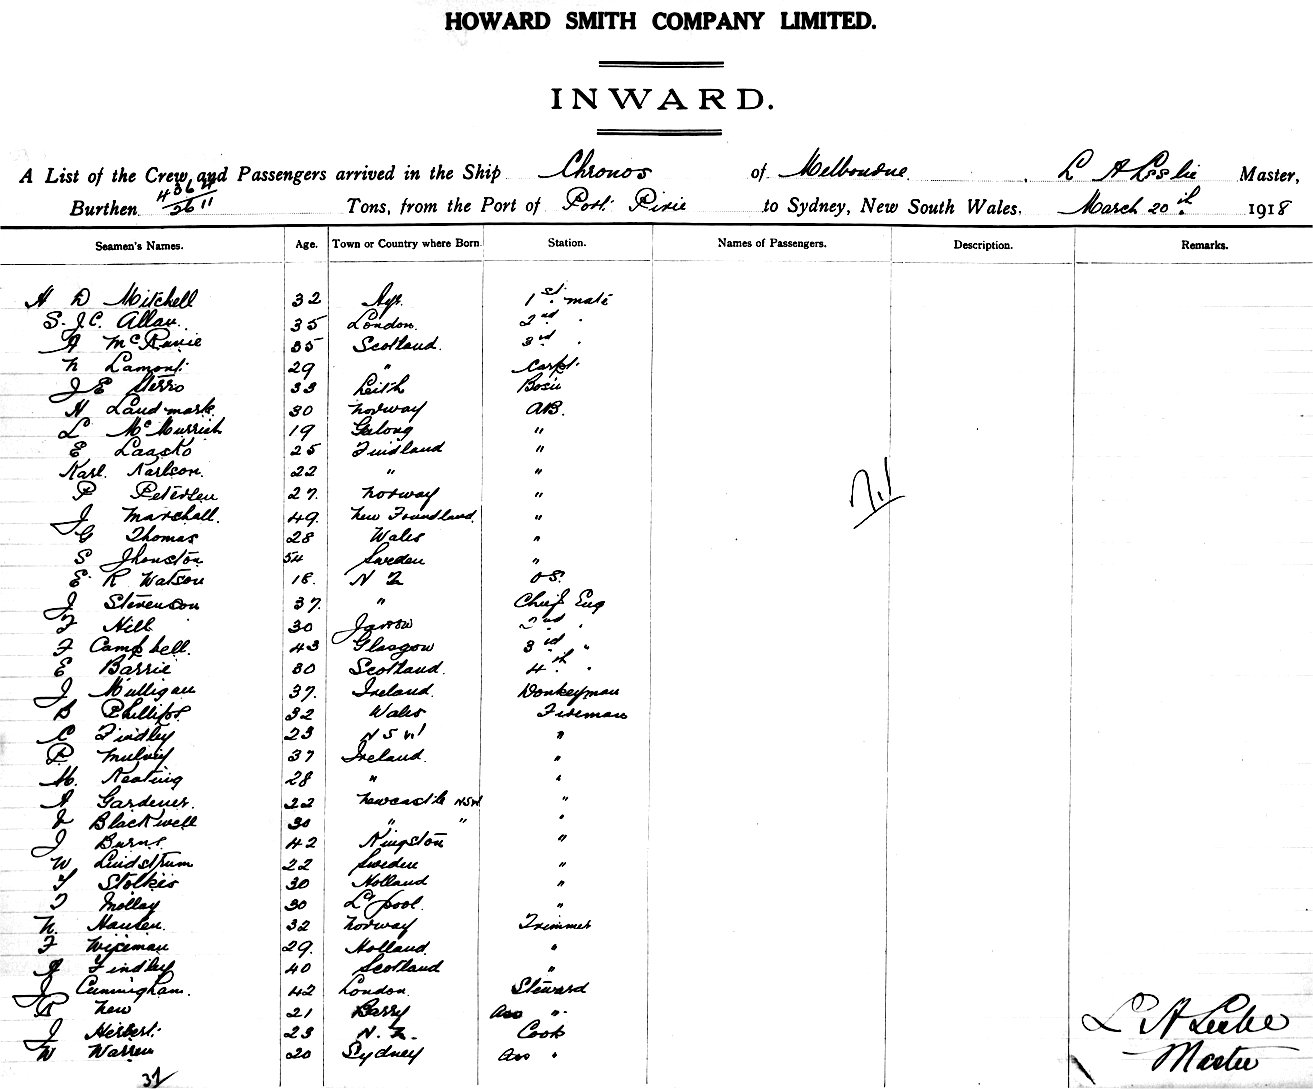 HOWARD SMITH COMPANY LIMITED.
INWARD.
A List of the Crew and Passengers arrived in the Ship Chronos of Melbourne, L A Leslie Master,
Burthen 4364/2611 Tons, from the Port of Port Pirie to Sydney, New South Wales, March 20th 1918
Seamen's Names. Age. Town or Country where Born. Station. Names of Passengers. Description. Remarks.
H D Mitchell 32 Ayr. 1st mate
S. J. C. Allan. 35 London. 2nd "
A McRanie 35 Scotland. 3rd "
N Lamont 29 " Carpt.
J E 33 Leith Bosn
H Landmark 30 Norway AB.
L McMurrich 19 Geelong "
E Laasko 25 Finidland "
Karl Karlson. 22 " "
P Petersen 27. Norway "
J Marshall. 49. New Foundland "
G Thomas 28 Wales "
S Jhonston 54 Sweden "
E. R Watson 18. N Z OS.
J Stevenson 37. " Chief Eng
F Hill 30 Jarrow 2nd "
F Campbell. 43 Glasgow 3rd "
E Barrie 30 Scotland. 4th "
J Mulligan 37. Ireland. Donkeyman
B Phillips. 32 Wales Fireman
C Findley 23 N S W "
P Mulvey 37 Ireland. "
M. Keating 28 " "
A Gardener. 22 Newcastle NSW "
Blackwell 30 " " "
J Burns 42 Kingston "
W Lindstrum 22 Sweden "
Stolkes 30 Holland "
Molloy 30 L'pool. "
N. Hansen. 32 Norway Trimmer
F Wiseman 29. Holland. "
A Findley 40 Scotland "
J Cunningham. 42 London. Steward
R New 21 Barry Ass "
J Herbert. 23 N. Z. Cook
W Warren 20 Sydney Ass "
Nil
L A Leslie
Master